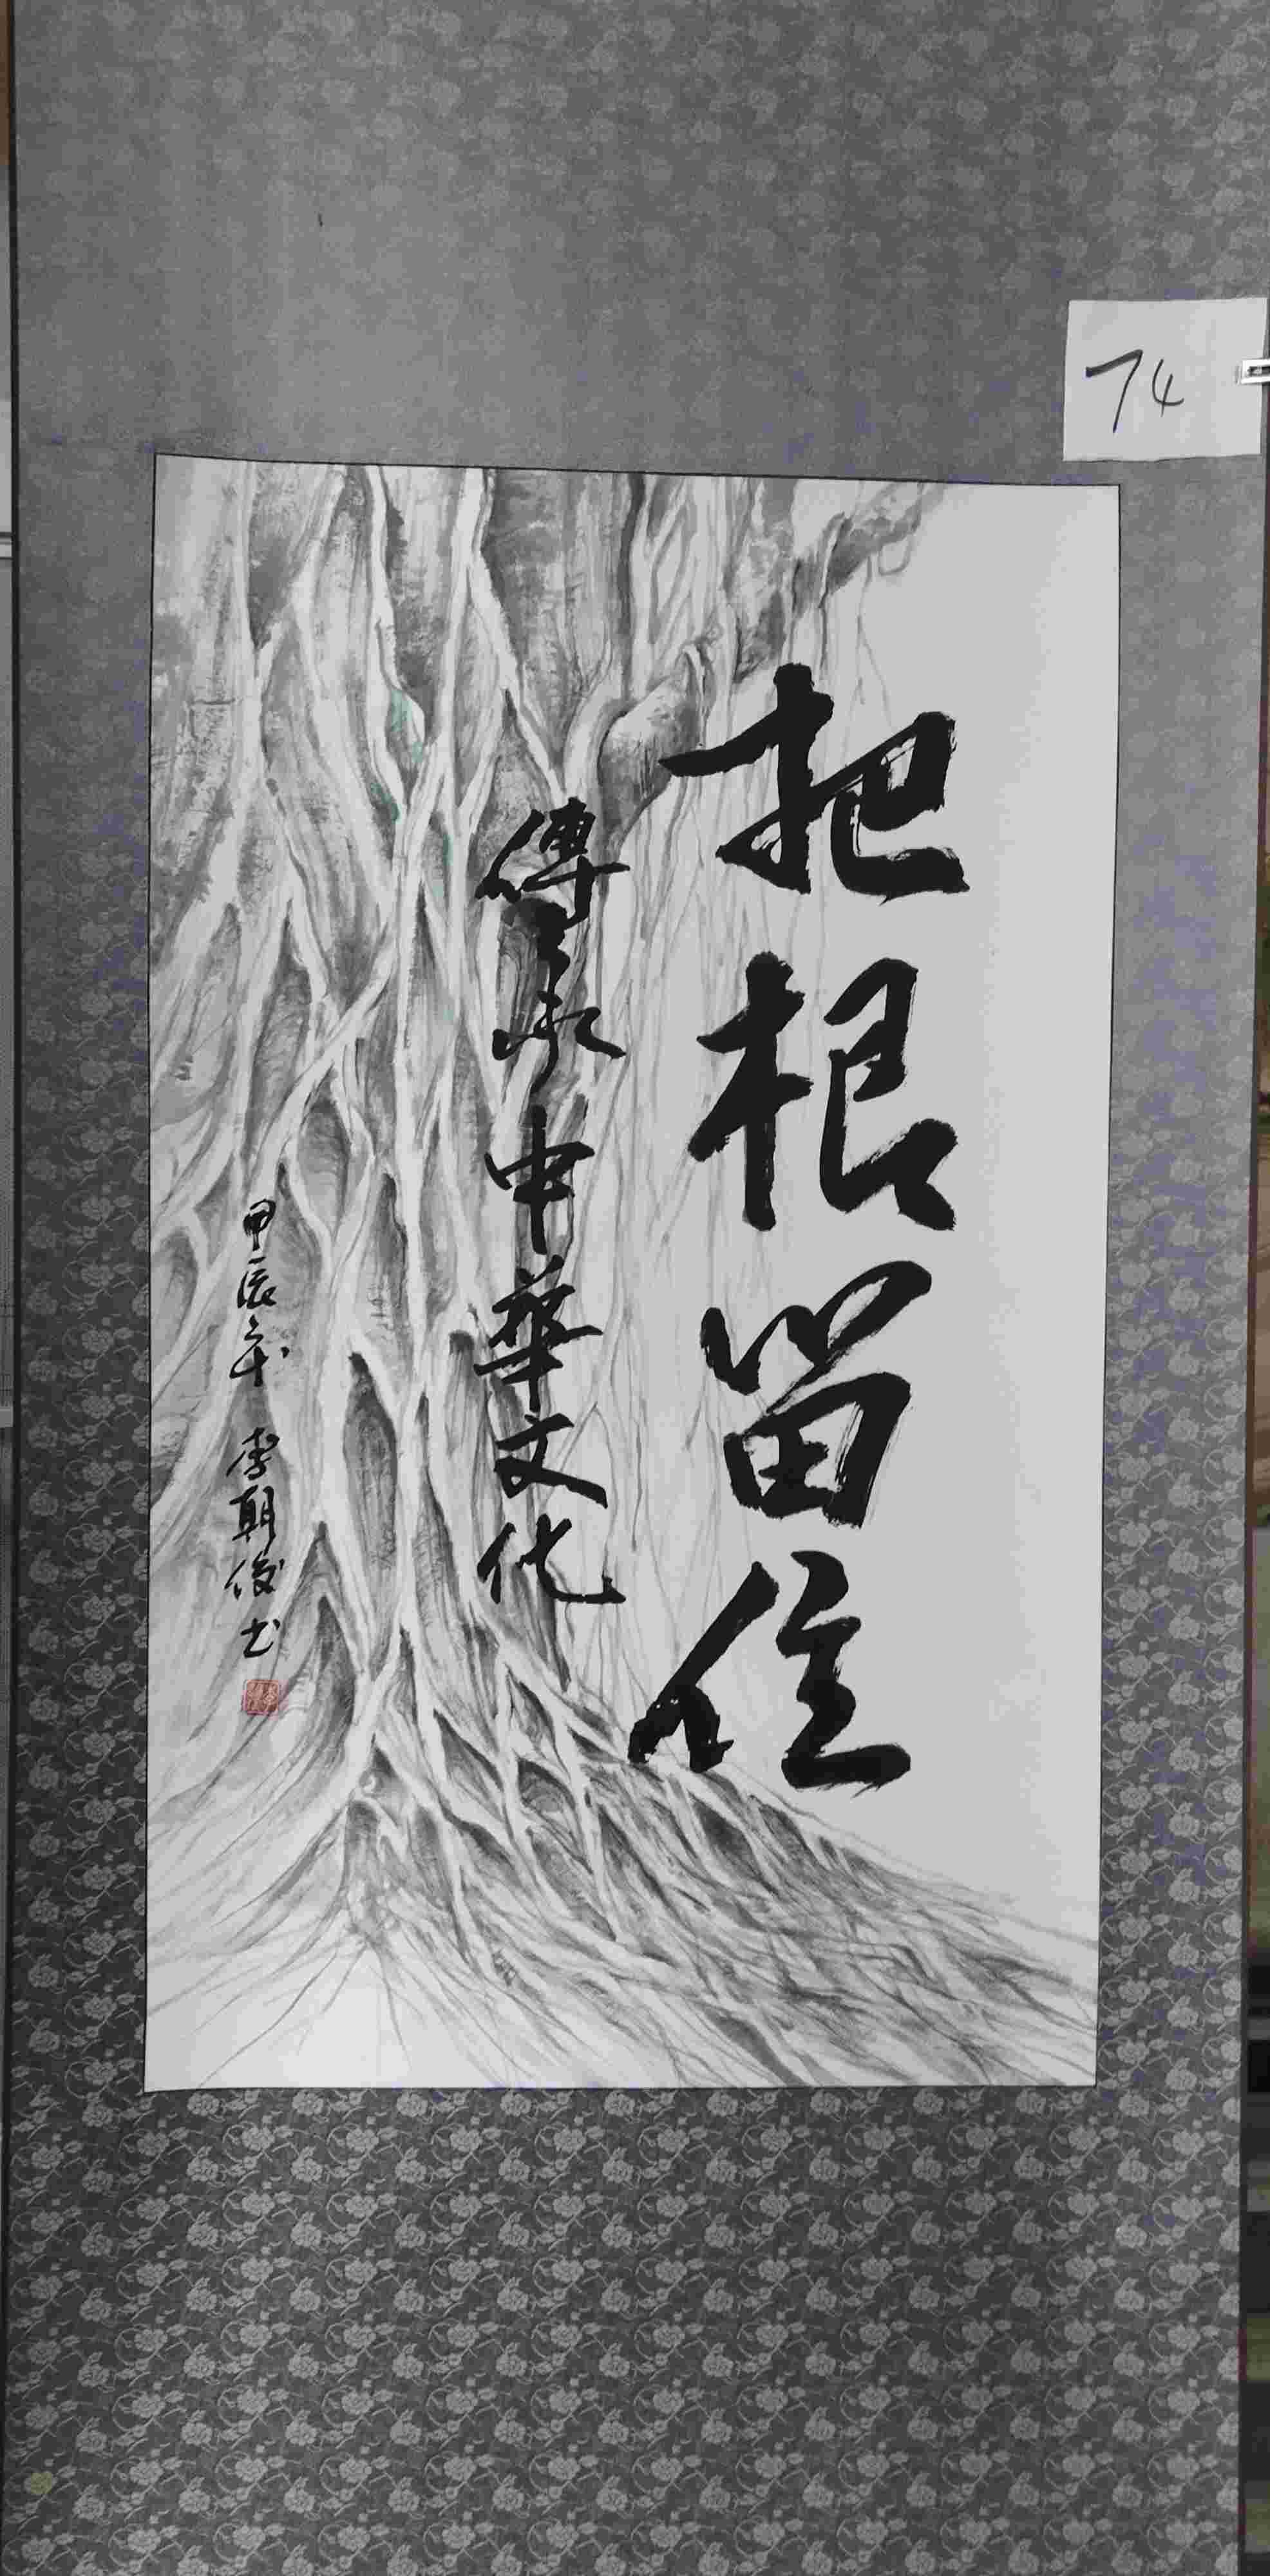 74
把根留住
傳承中華文化
甲辰年 李朝俊书